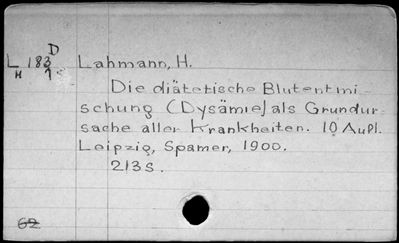 D
L 183 Lahmann, H.
H 1
Die diätetische Blutentmi-
schung (Dysämie) als Grundur-
sache aller Krankheiten. 10 Aufl.
Leipzig, Spamer, 1900.
213 S.
62